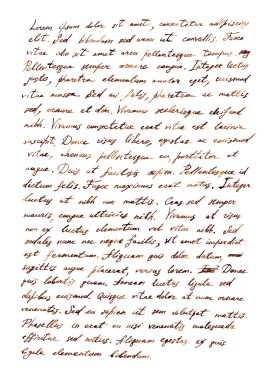 Lorem ipsum dolor sit amet, consectetur adipiscing
elit. Sed bibendum sed arcu ut convallis. Fusce
vitae dui sit amet arcu pellentesque tempus.
Pellentesque semper ornare congue. Integer lectus
justo, pharetra elementum auctor eget, euismod
vitae massa. Sed mi felis, pharetra ac mattis
sed, ornare et dom. Vivamus scelerisque eleifend
nibh. Vivamus consectetur erat vitae est lacinia
suscipit. Donec risus libero, egestas ac euismod
vitae, rhoncus pellentesque eu, porttitor at
augue. Duis at facilisis sapien. Pellentesque id
dictum felis. Fusce maximus erat mattis. Integer
luctus at nibh non mattis. Cras sed semper
mauris, congue ultricies nibh. Vivamus at risus
non ex luctus elementum vel vitae nibh. Sed
sodales nunc nec neque facilisis, sit amet imperdiet
est fermentum. Aliquam quis dolor dictum,
sagittis augue placerat, varius lorem. Donec
quis lobortis quam. Aenean luctus ligula sed
dapibus euismod. Quisque vitae dolor at nunc ornare
venenatis. Sed eu sapien sit sem volutpat mattis.
Phasellus in erat eu nisi venenatis malesuada
efficitur sed metus. Aliquam egestas ex quis
ligula elementum bibendum.